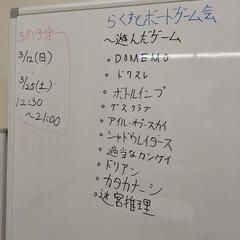 3月予定
3/12(日)
3/25(土)
12:30
～21:00
らくすとボードゲーム会
～遊んだゲーム
・DOMEMO
・ドクスレ
・ボトルインプ
・ゲスクラブ
・アイル・オブ・スカイ
・シャドウレイダーズ
・適当なカンケイ
・ドリアン
・カタカナーシ
・迷宮推理